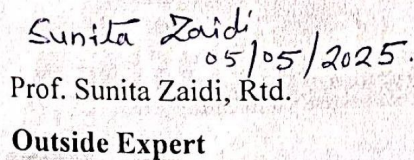 Sunita Zaidi
05/05/2025.
Prof. Sunita Zaidi, Rtd.
Outside Expert